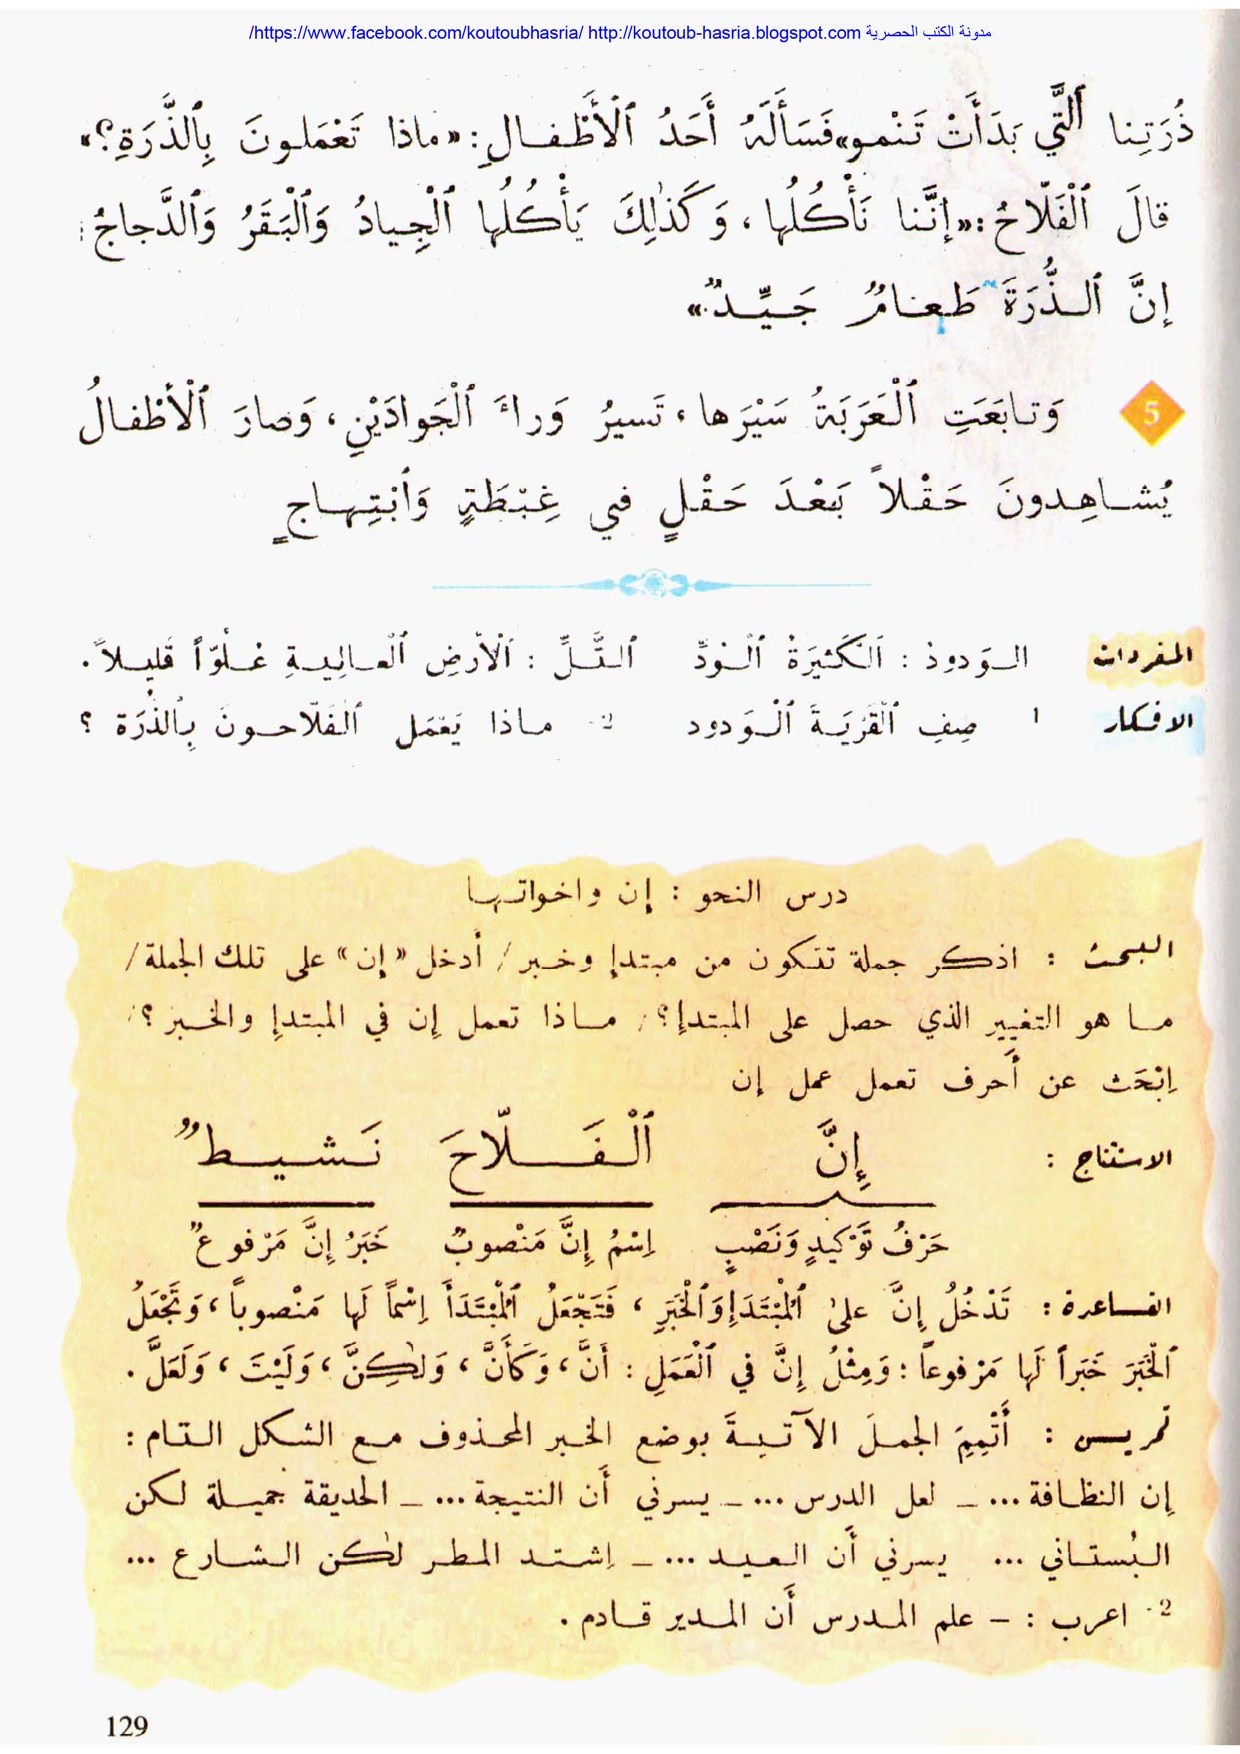 https://www.facebook.com/koutoubhasria/ http://koutoub-hasria.blogspot.com مدونة الكتب الحصرية/
ذُرَتِنا ٱلَّتي بَدَأَتْ تَنْمو» فَسَأَلَهُ أَحَدُ ٱلْأَطْفالِ: «ماذا تَعْمَلونَ بِٱلذَّرَةِ؟»
قالَ ٱلْفَلّاحُ: «إِنَّنا نَأْكُلُها، وَكَذٰلِكَ يَأْكُلُها ٱلْجِيادُ وَٱلْبَقَرُ وَٱلدَّجاجُ:
إِنَّ ٱلذُّرَةَ طَعامٌ جَيِّدٌ.»
5 وَتابَعَتِ ٱلْعَرَبَةُ سَيْرَها، تَسيرُ وَراءَ ٱلْجَوادَيْنِ، وَصارَ ٱلْأَطْفالُ
يُشاهِدونَ حَقْلاً بَعْدَ حَقْلٍ في غِبْطَةٍ وَٱبْتِهاجٍ
المفردات الوَدودُ : اَلْكَثيرَةُ ٱلْوُدِّ التَّلِّ : ٱلْأَرْضِ ٱلْعالِيةِ عُلُوّاً قَليلاً.
الافكار 1 صِفِ ٱلْقَرْيَةَ ٱلْوَدود 2- ماذا يَعْمَل ٱلْفَلّاحونَ بِٱلذُّرَة ؟
درس النحو : إن واخواتها
البحث : اذكر جملة تتكون من مبتدإ وخبر / أدخل «إن» على تلك الجملة /
ما هو التغيير الذي حصل على المبتدإ؟ / ماذا تعمل إن في المبتدإ والخبر ؟ /
اِبْحَث عن أَحرف تعمل عمل إن
الاستنتاج : إِنَّ ٱلْفَلّاحَ نَشيطٌ
حَرْفُ تَوْكيدٍ وَنَصْبٍ اِسْمُ إِنَّ مَنْصوبٌ خَبَرُ إِنَّ مَرْفوعٌ
القاعدة : تَدْخُلُ إِنَّ عَلىٰ ٱلْمُبْتَدَإِ وَٱلْخَبَرِ ، فَتَجْعَلُ ٱلْمُبْتَدَأَ اِسْماً لَها مَنْصوباً ، وَتَجْعَلُ
ٱلْخَبَرَ خَبَراً لَها مَرْفوعاً : وَمِثْلُ إِنَّ في ٱلْعَمَلِ : أَنَّ ، وَكَأَنَّ ، وَلٰكِنَّ ، وَلَيْتَ ، وَلَعَلَّ .
تمريس : أَتْمِمِ الجملَ الآتيةَ بوضع الخبر المحذوف مع الشكل التام :
إِن النظافة ... – لعل الدرس ... – يسرني أَن النتيجة ... – الحديقة جميلة لكن
البُستاني ... يسرني أَن العيد ... – اِشتد المطر لٰكن الشارع ...
2- اعرب : – علم المدرس أَن المدير قادم .
129